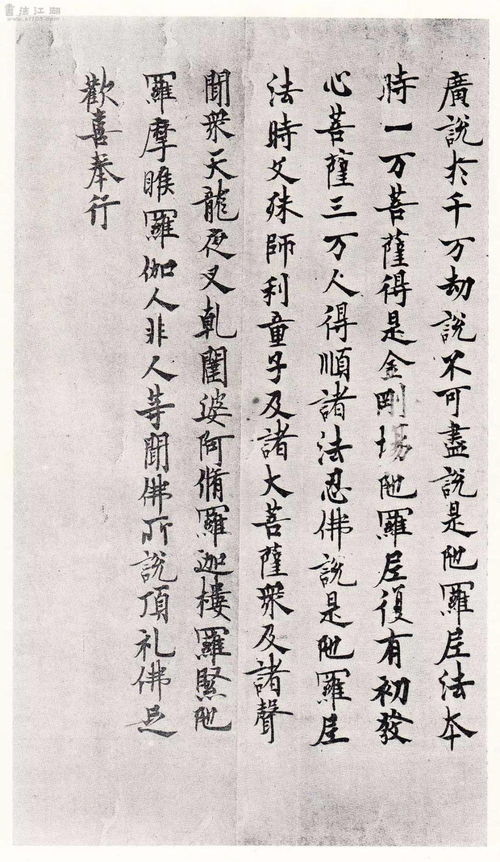 書法江湖
廣說於千万劫說不可盡說是陁羅尼法本
時一万菩薩得是金剛場陁羅尼復有初發
心菩薩三万人得順諸法忍佛說是陁羅尼
法時文殊師利童子及諸大菩薩衆及諸聲
聞衆天龍夜叉乹闥婆阿脩羅迦樓羅緊陁
羅摩睺羅伽人非人等聞佛所說頂礼佛足
歡喜奉行